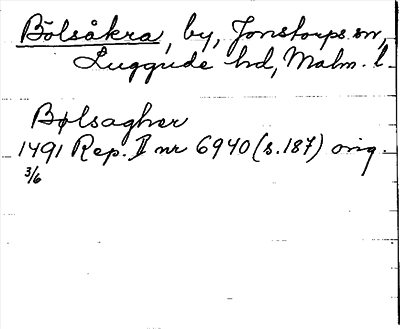 Bölsåkra, by, Jonstorps sn,
Luggude hd, Malm. l.
Bølsagher
1491 Rep. II nr 6940 (s. 187) orig.
3/6